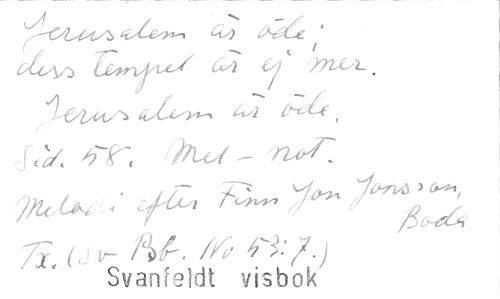 Jerusalem är öde;
dess tempel är ej mer.
Jerusalem är öde.
Sid. 58. Mel-not.
Melodi efter Finn Jon Jonsson,
Boda
Tx. (sv Psb. No 53:7.)
Svanfeldt visbok